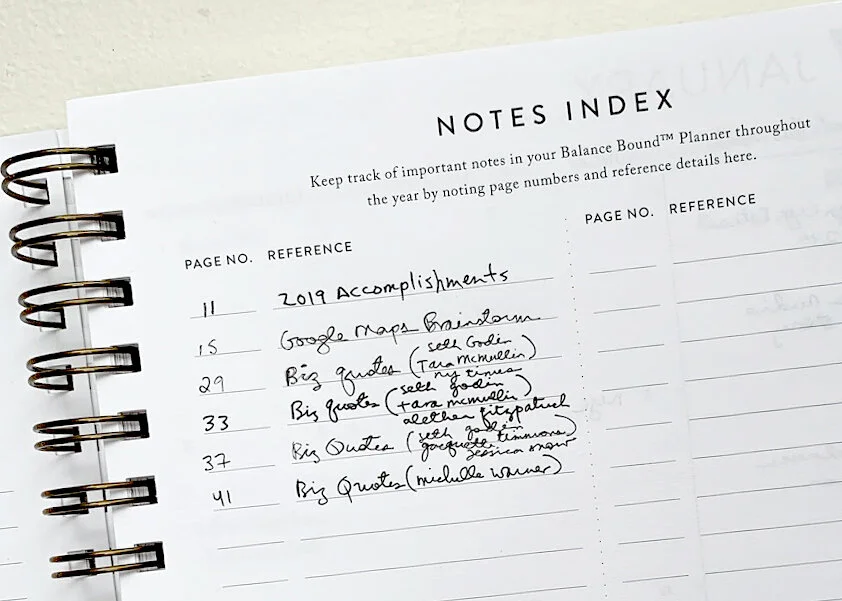 NOTES INDEX
Keep track of important notes in your Balance Bound™ Planner throughout
the year by noting page numbers and reference details here.
PAGE NO. REFERENCE
11 2019 Accomplishments
15 Google Maps Brainstorm
29 Biz quotes (seth Godin
Tara McMullin)
ny times
33 Biz quotes (seth godin
tara mcmullin)
alethea fitzpatrick
37 Biz Quotes (seth godin
jacquette timmons)
jessica snow
41 Biz Quotes (michelle warner)
PAGE NO. REFERENCE
JANUARY